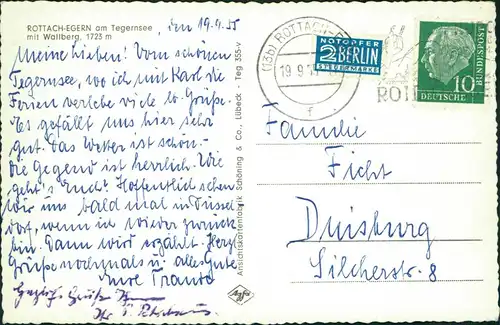 ROTTACH-EGERN am Tegernsee
mit Wallberg, 1723 m
, den 19.9.55
Meine Lieben! Vom schönen
Tegernsee, wo ich mit Karl die
Ferien verlebe viele lb. Grüße.
Es gefällt uns hier sehr
gut. Das Wetter ist schön.
Die Gegend ist herrlich. Wie
geht's Euch? Hoffentlich sehen
wir uns bald mal in Düssel
dorf, wenn ich wieder zurück
bin. Dann wird erzählt. Herzl.
Grüße nochmals u. alles Gute
Eure Traute
Grüße
Ansichtskartenfabrik Schöning & Co., Lübeck · Teg 355-V
Agfa
(13b) ROTTACH
19.9.
f
NOTOPFER
2 BERLIN
STEUERMARKE
ROT
10
DEUTSCHE
BUNDESPOST
Familie
Ficht
Duisburg
Silcherstr. 8